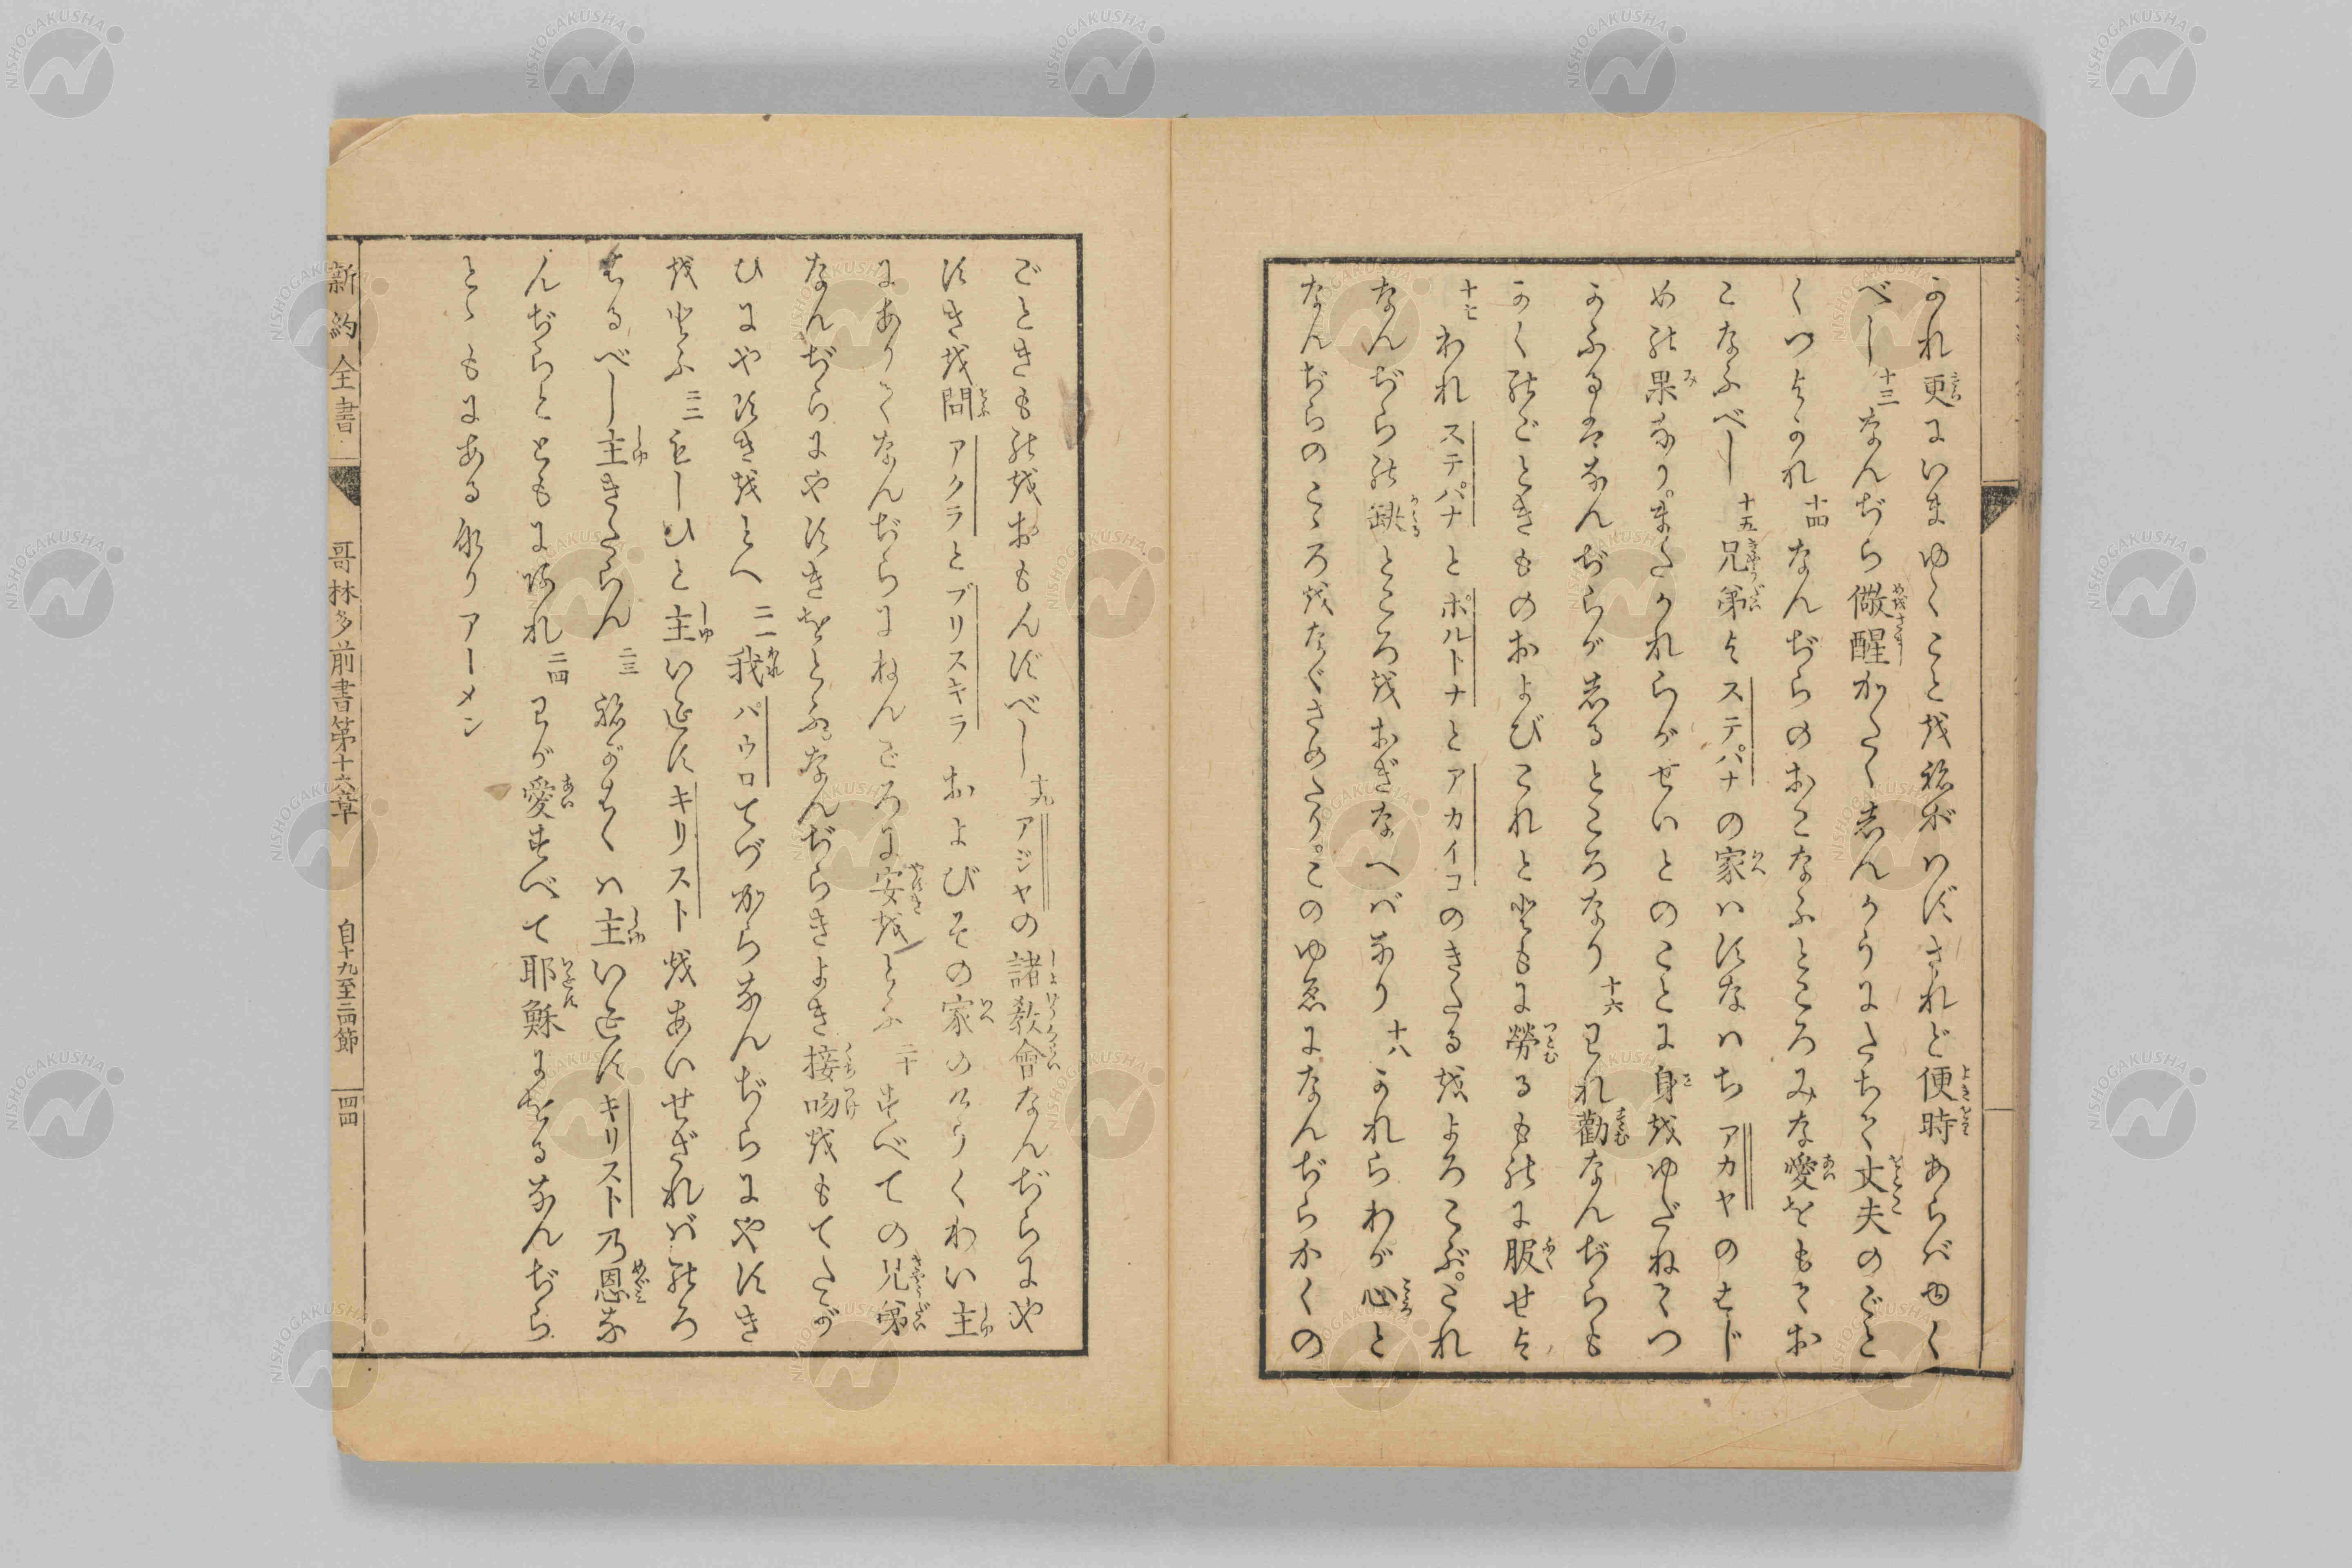 かれ更にいまゆくことを祢がハずされど便時あらバゆく
べし十三なんぢら儆醒かたくしんかうにたちて丈夫のごと
くつよかれ十四なんぢらのおこなふところみな愛をもてお
こなふべし十五兄弟よステパナの家ハすなハちアカヤのはじ
めの果なりまたかれらがせいとのことに身をゆだねてつ
かふるはなんぢらがしるところなり十六われ勸なんぢらも
かくのごときものおよびこれとともに勞るものに服せよ
十七われステパナとポルトナとアカイコのきたるをよろこぶ。これ
なんぢらの缺ところをおぎなへバなり十八かれらわが心と
なんぢらのこゝろをなぐさめたり。このゆゑになんぢらかくの
ごときものをおもんずべし十九アジヤの諸教會なんぢらにや
すきを問アクラとプリスキラおよびその家のけうくわい主
にありてなんぢらにねんごろに安をとふ二十すべての兄弟
なんぢらにやすきをとふ。なんぢらきよき接吻をもてたが
ひにやすきをとへ二一我パウロてづからなんぢらにやすき
をとふ二二もしひと主いゑすキリストをあいせざれバのろ
はるべし主きたらん二三祢がはくハ主いゑすキリスト乃恩な
んぢらとともにあれ二四わが愛すべて耶穌にをるなんぢら
とゝもにあるなりアーメン
新約全書
哥林多前書第十六章
自十九至二四節
四四
NISHOGAKUSHA